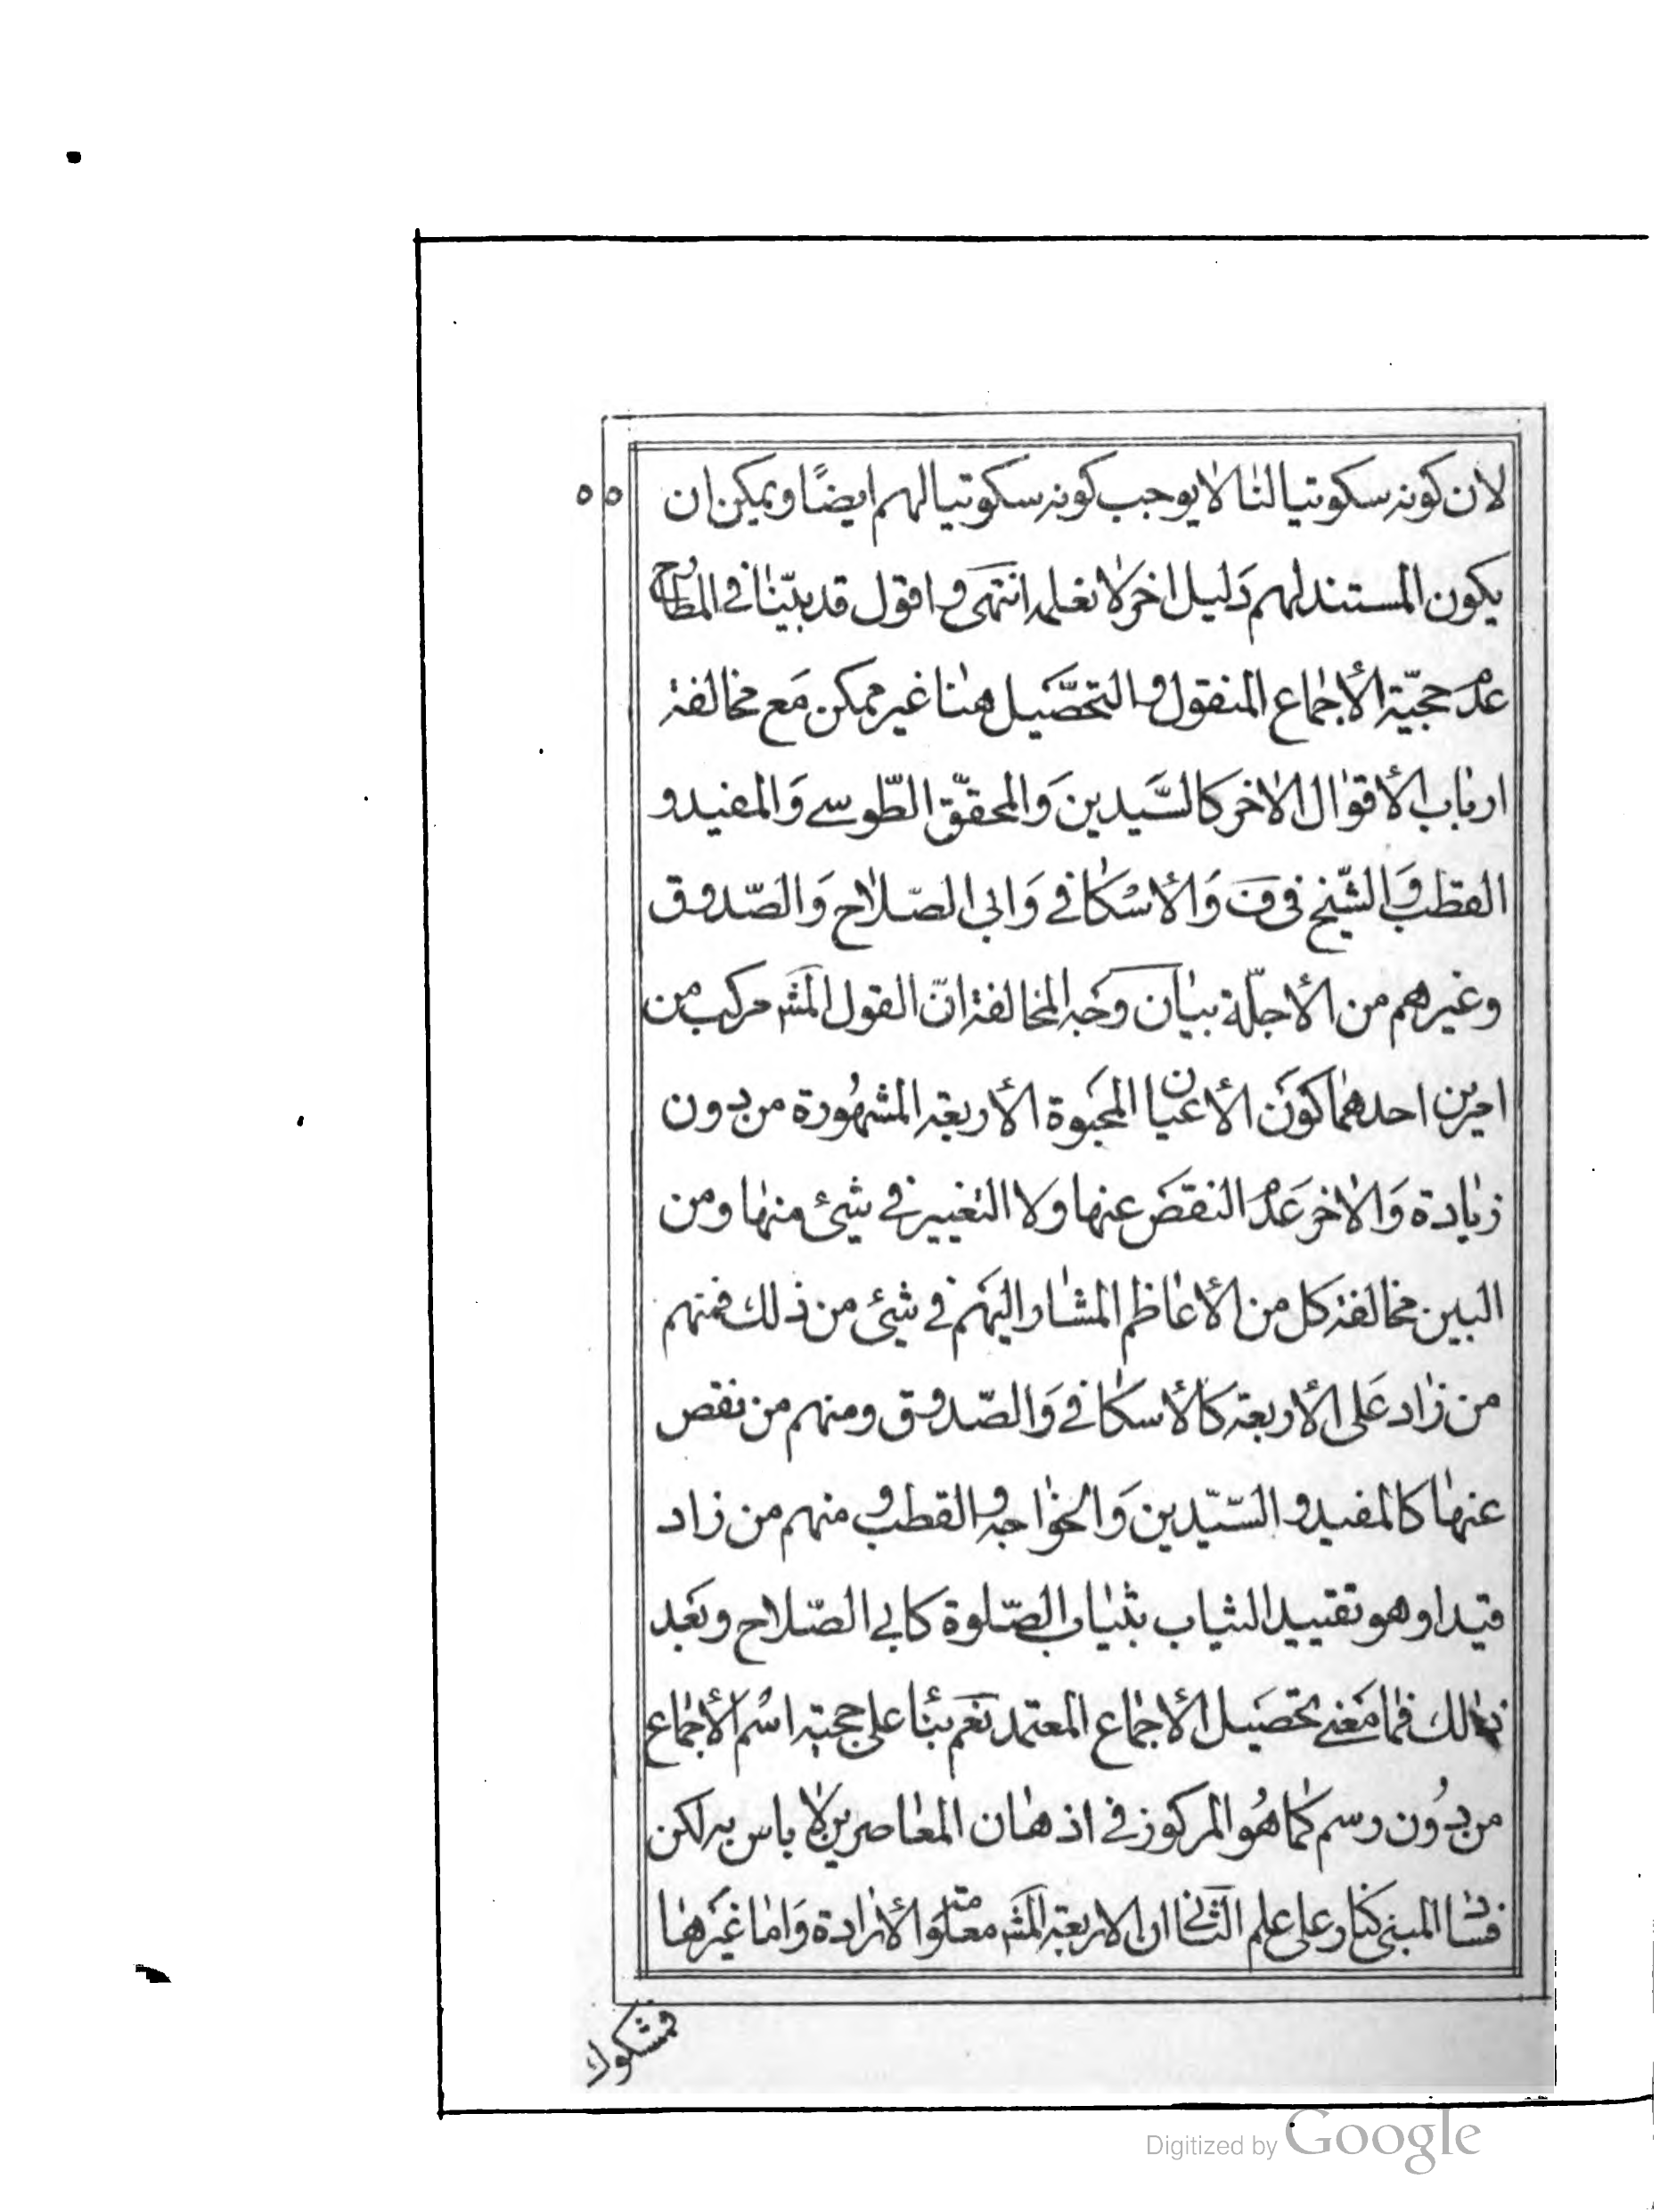 ٥٥
لان كونه سكوتيا لنا لا يوجب كونه سكوتيا لهم ايضًا ويمكن ان
يكون المستند لهم دَليل اخر لا نعلمه انتهى و اقول قد بيّنا في المطارح
عدم حجيّة الأجماع المنقول و التحصَيل هنا غير ممكن مَع مخالفة
ارباب الأقوال الاخر كالسَّيدين وَالمحقّق الطّوسے وَالمفيد و
القطب و الشّيخ في ف وَالأسْكافے وَابى الصّلاح وَالصّدوق
وغيرهم من الأجلّة بيان وجَه المخالفة انّ القول المشَ مركب من
امرين احدهما كوَن الأعيان المحَبوة الأربعة المشهُورة من دون
زيادة وَالاخر عَدم النقصَ عنها ولا التغيير في شيئ منها ومن
البين مخالفة كل من الأعاظم المشار اليهَم في شيئ من ذلك فمنهم
من زاد عَلى الأربعة كالأسكافے وَالصّدوق ومنهم من نقص
عنها كالمفيد و السّيّدين وَالخواجه و القطب و منهم من زاد
قيدا وهو تقييد الثياب بثياب الصّلوة كابى الصّلاح وبَعد
ذلك فما مَعنے تحصَيل الأجماع المعتمد نعَم بنأ على حجية اسُم الأجماع
من دُون رسم كما هُو المركوز في اذهان المعاصرين لا باس به لكن
فساد المبنى كنار على علم الثَاني ان الاربعة المشَ معلومَة الأرادة وَاما غيَرها
فمشكوك
Digitized by Google